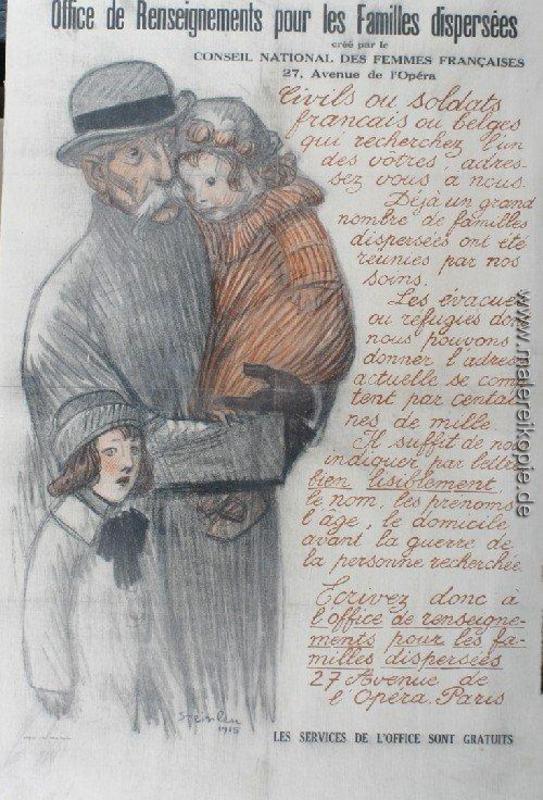 Office de Renseignements pour les Familles dispersées
créé par le
CONSEIL NATIONAL DES FEMMES FRANÇAISES
27, Avenue de l'Opéra
Civils ou soldats
français ou belges
qui recherchez l'un
des votres, adres-
sez vous à nous.
Déjà un grand
nombre de familles
dispersées ont été
réunies par nos
soins.
Les évacués
ou réfugiés do
nous pouvons
donner l'adres
actuelle se com
tent par centai
nes de mille
Il suffit de no
indiquer par lettre
bien lisiblement
le nom, les prénoms
l'âge, le domicile
avant la guerre de
la personne recherchée
Ecrivez donc à
l'office de renseigne-
ments pour les fa-
milles dispersées
27 Avenue de
l'Opéra. Paris
Steinlen
1915
LES SERVICES DE L'OFFICE SONT GRATUITS
www.malereikopie.de